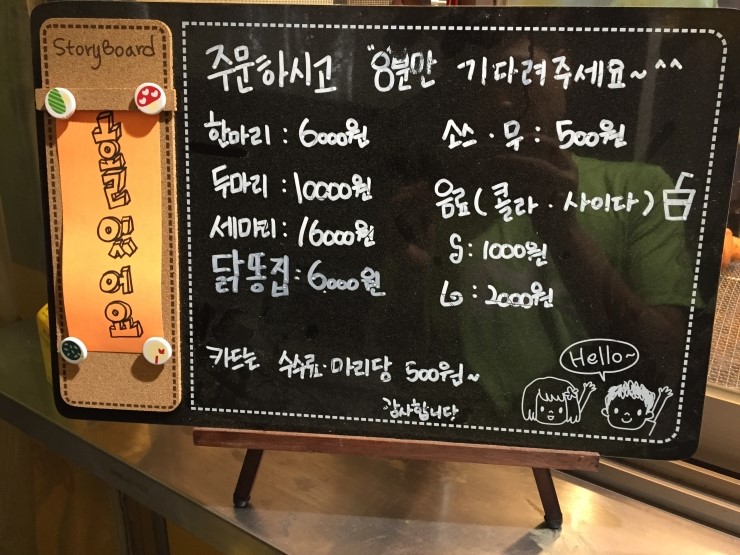 StoryBoard
주문하시고 "8분만 기다려주세요~^^
한마리 : 6000원
두마리 : 10000원
세마리 : 16000원
닭똥집 : 6000원
소스 · 무 : 500원
음료 (콜라 · 사이다)
S : 1000원
L : 2000원
카드는 수수료·마리당 500원~
감사합니다
Hello~